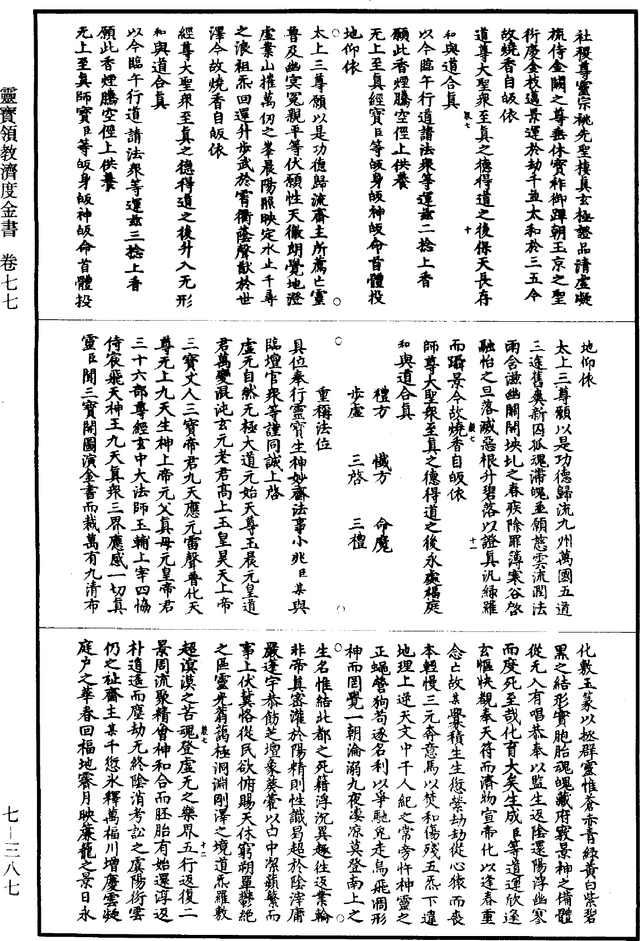 社稷尊靈宗祧先聖接真玄極證品清虛凝
旒侍金闕之尊垂休寶祚御蹕朝玉京之聖
衍慶金枝邁景運於劫千盈太和於三五今
故燒香自皈依
道尊大聖衆至真之德得道之後保天長存
和與道合真
以今臨午行道諸法衆等運茲二捻上香
願此香煙騰空徑上供養
无上至真經寶臣等皈身皈神皈命首體投
地仰依
太上三尊願以是功德歸流齋主所薦亡靈
普及幽冥冤親平等伏願性天徹朗覺地澄
虛業山摧萬仞之峯晨陽照映定水止千尋
之浪祖炁回還升步武於霄衢蔭聲猷於世
澤今故燒香自皈依
經尊大聖衆至真之德得道之後升入无形
和與道合真
以今臨午行道諸法衆等運茲三捻上香
願此香煙騰空徑上供養
无上至真師寶臣等皈身皈神皈命首體投
地仰依
太上三尊願以是功德歸流九州萬國五道
三途舊爽新囚孤魂滯魄並願慈雲流潤法
雨含滋幽關開坱圠之春疾除罪簿寒谷啓
融怡之旦落滅惡根升碧落以證真汎綠羅
而躡景今故燒香自皈依
師尊大聖衆至真之德得道之後永處福庭
和與道合真
禮方 懺方 命魔
步虛 三啓 三禮
重稱法位
具位奉行靈寶生神妙齋法事小兆臣某與
臨壇官衆等謹同誠上啓
虛无自然无極大道元始天尊玉晨元皇道
君萬變混沌玄元老君高上玉皇昊天上帝
三寶丈人三寶帝君九天應元雷聲普化天
尊无上九天生神上帝元父真母元皇帝君
三十六部尊經玄中大法師玉輔上宰四協
侍宸飛天神王九天真衆三界應感一切真
靈臣聞三寶開圖演金書而裁萬有九清布
化敷玉篆以拯群靈惟蒼赤青綠黃白紫碧
累之結形實胞胎魂魄藏府竅景神之備體
從无入有唱恭奉以監生返陰還陽浮幽寥
而度死至哉化育大矣生成臣等道運欣逢
玄樞快覩奉天符而濟物宣帝化以逢春重
念亡故某釁積生生愆縈劫劫從心猿而喪
本輕慢三元奔意馬以焚和傷殘五炁下違
地理上逆天文中干人紀之常旁忤神靈之
正蝇營狗苟逐名利以爭馳兔走烏飛凋形
神而罔覺一朝淪溺九夜凄凉莫登南上之
生名惟結北都之死籍浮沉異趣往返業輪
非帝真密濰於陽精則性識曷超於陰滓庸
嚴蓬宇恭飭芝壇象葵藿以占中潔蘋蘩而
事上伏冀恪從民欲俯賜天休窮朔單鬱絕
之區靈光蓊藹極洞淵剛澤之境道炁羅敷
超溟漠之苦魂登虛无之樂界五行返復二
景周流聚精會神和合而胚胎有始還淳返
朴逍遙而塵劫无終陰消考訟之虞陽衍雲
仍之祉齋主某千愆氷釋萬福川增慶雲凝
庭户之華春回福地霽月映簾櫳之景日永
靈寶領教濟度金書 卷七七
七—三八七